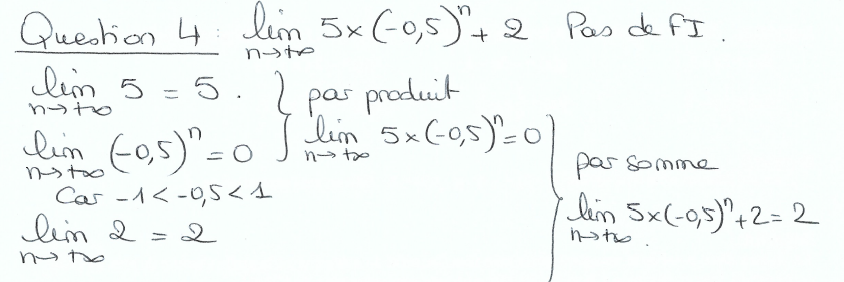 Question 4 : lim n→+∞ 5×(-0,5)^n + 2 Pas de FI.
lim n→+∞ 5 = 5.
lim n→+∞ (-0,5)^n = 0
Car -1 < -0,5 < 1
par produit
lim n→+∞ 5×(-0,5)^n = 0
lim n→+∞ 2 = 2
par somme
lim n→+∞ 5×(-0,5)^n + 2 = 2